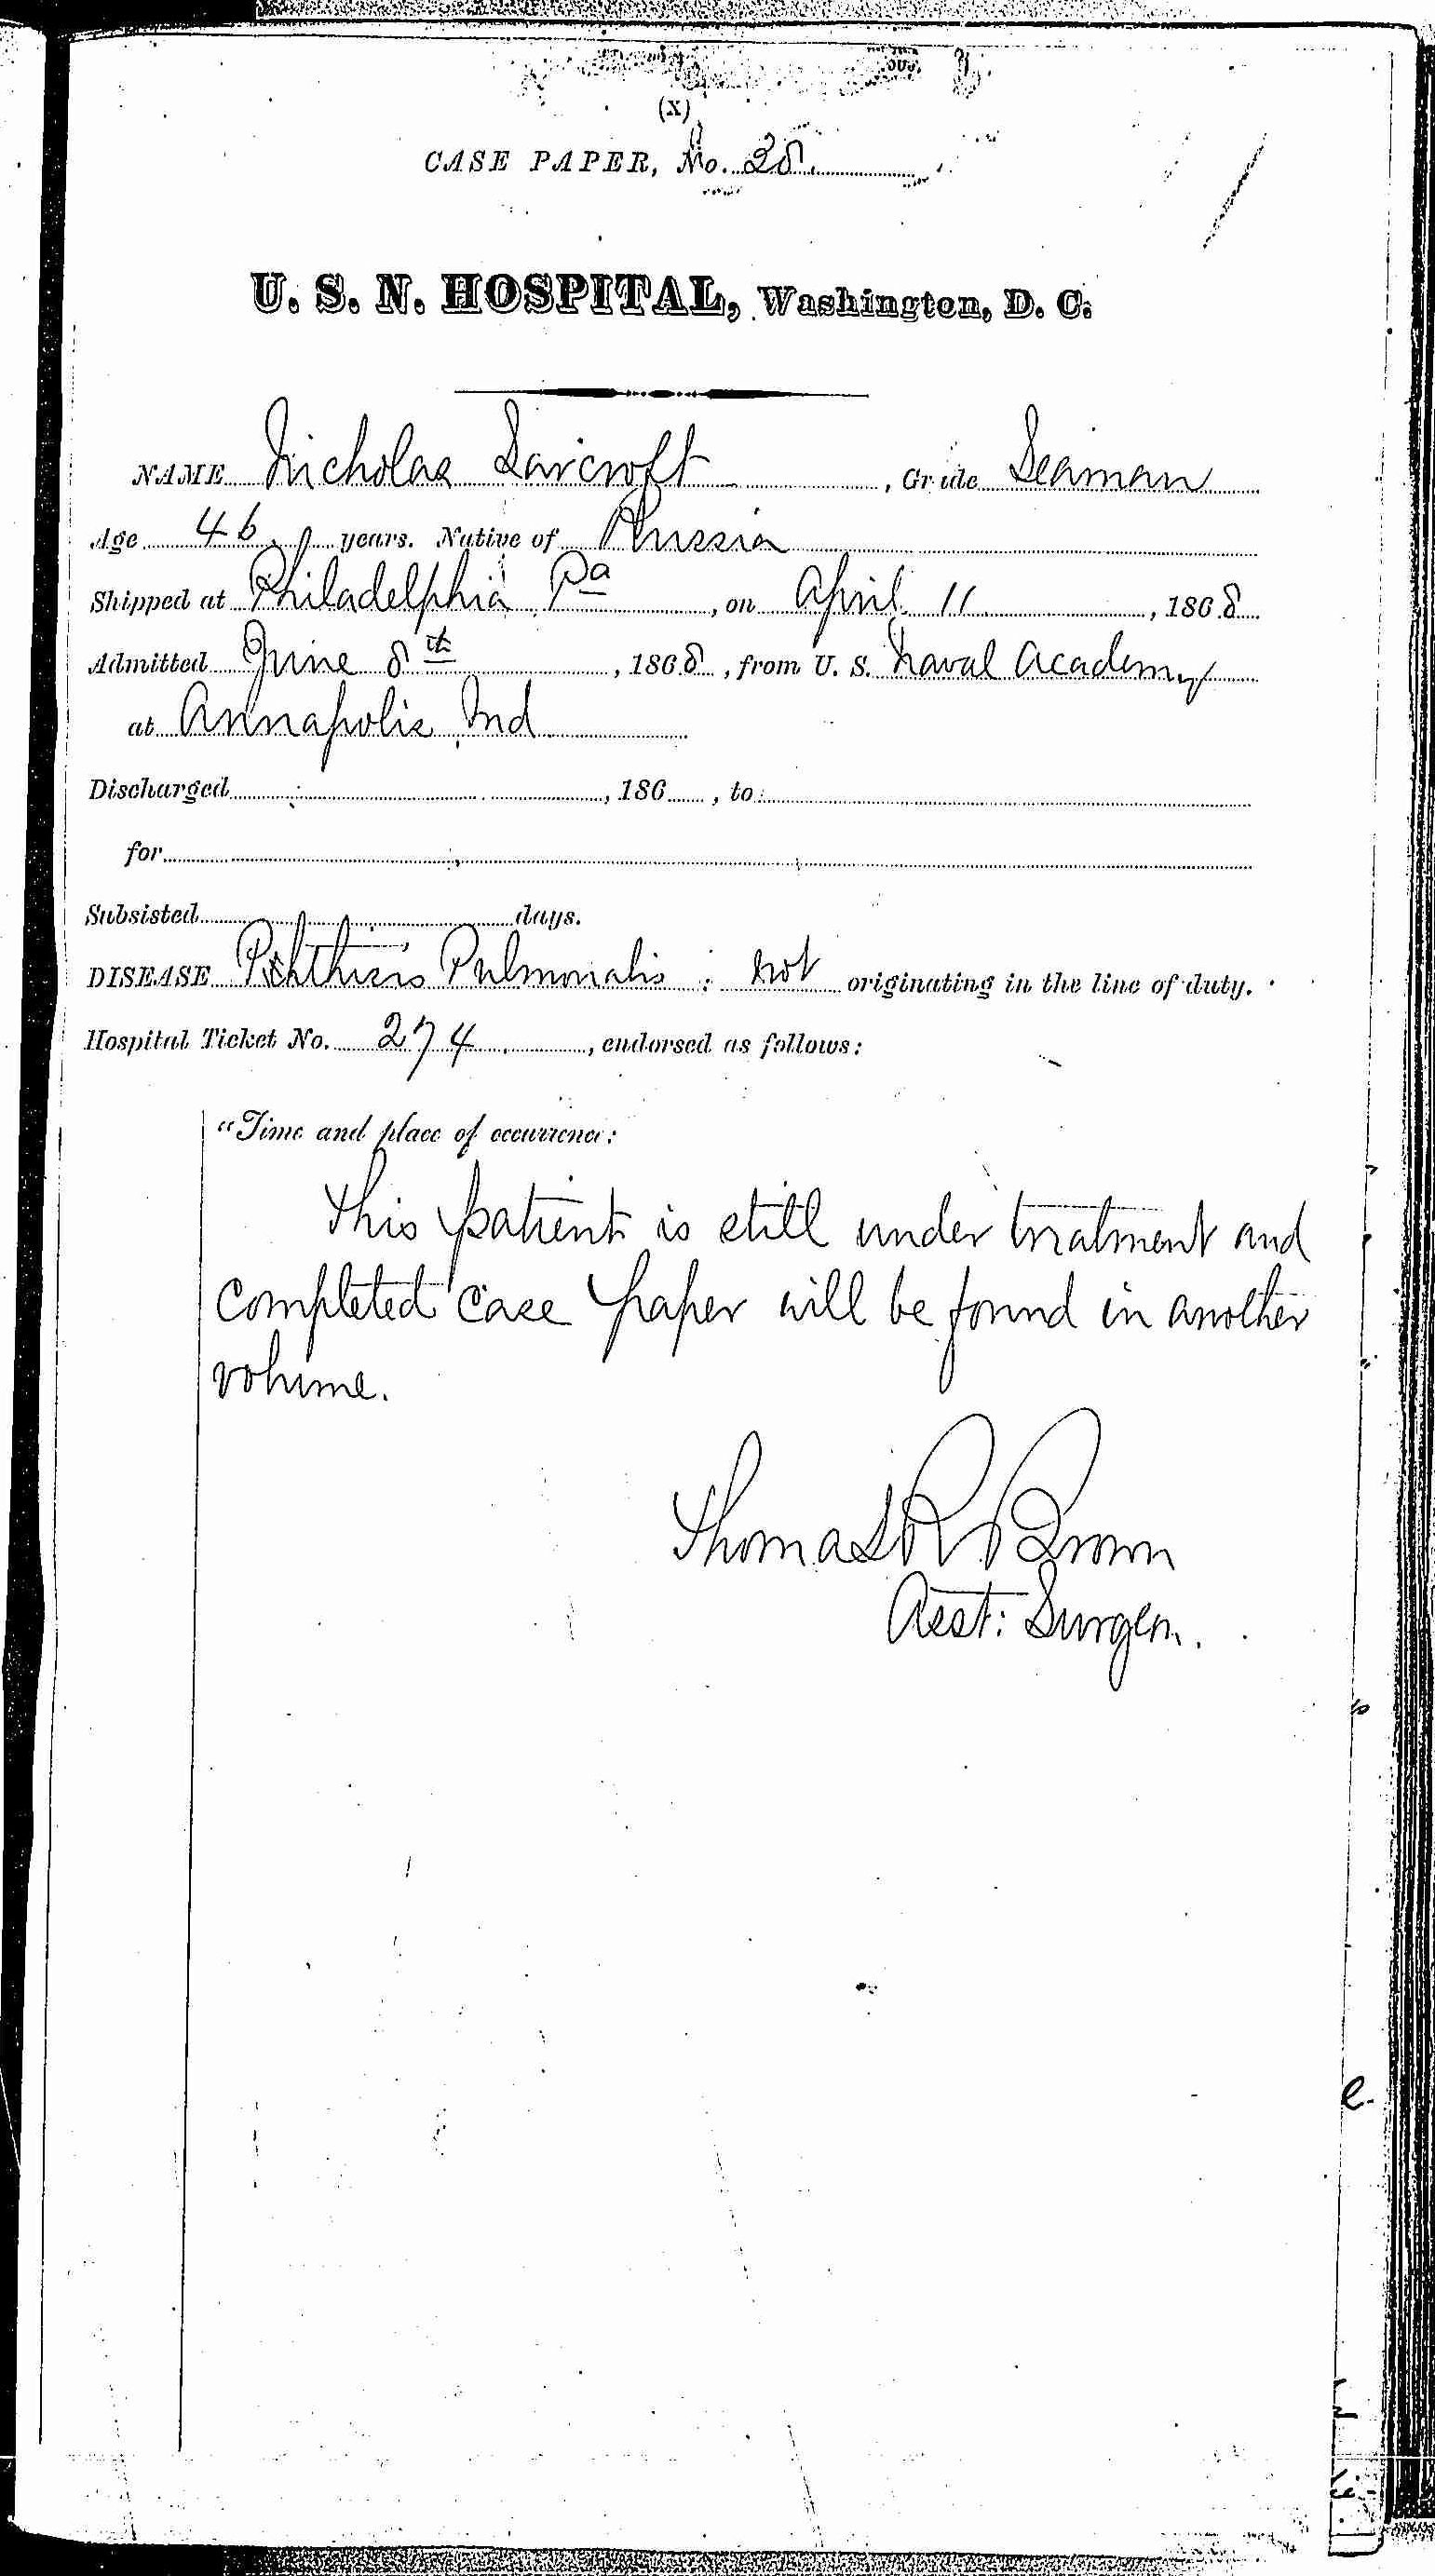 (X)
CASE PAPER, No. 28.
U. S. N. HOSPITAL, Washington, D. C.
NAME Nicholas Sarcroft, Grade Seaman
Age 46 years. Native of Russia
Shipped at Philadelphia Pa, on April 11, 1868
Admitted June 8th, 1868, from U. S. Naval Academy
at Annapolis Md
Discharged, 186, to
for
Subsisted days.
DISEASE Phthisis Pulmonalis: not originating in the line of duty.
Hospital Ticket No. 274, endorsed as follows:
"Time and place of occurrence:
This patient is still under treatment and
completed case paper will be found in another
volume.
Thomas R Brown
Asst: Surgeon.